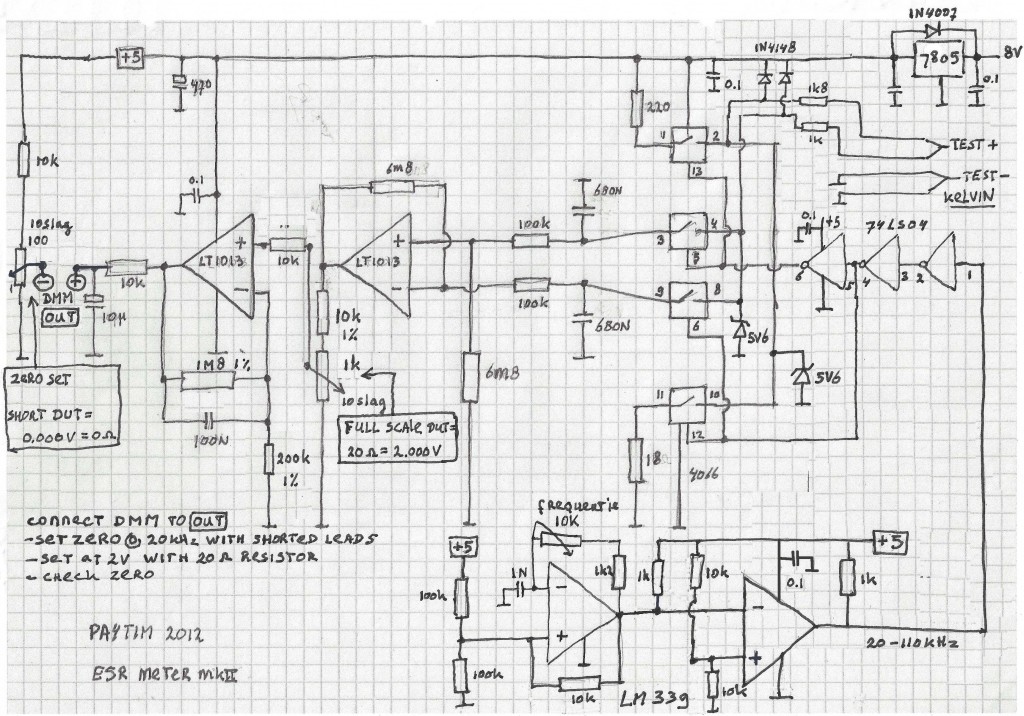 1N4007
+5
1N4148
7805
8V
470
0.1
0.1
220
1k8
10k
1
2
1k
TEST+
13
6m8
680N
TEST-
KELVIN
0.1
10slag
100
100k
3
4
5
0.1
+5
74LS04
+
LT1013
-
10k
+
LT1013
-
6
5
4
3
2
1
10k
DMM
OUT
10µ
100k
9
8
6
680N
5V6
10k
1%
1k
10slag
6m8
5V6
ZERO SET
SHORT DUT=
0,000V=0Ω
1M8 1%
100N
FULL SCALE DUT=
20Ω=2.000V
11
10
12
200k
1%
18
4066
frequentie
10K
CONNECT DMM TO OUT
-SET ZERO @ 20KHZ WITH SHORTED LEADS
-SET AT 2V WITH 20Ω RESISTOR
- CHECK ZERO
+5
+5
1N
1k2
1k
10k
0.1
1k
100k
-
+
-
+
20-110KHZ
PAYTIM 2012
100k
10k
10k
ESR METER MKII
LM339